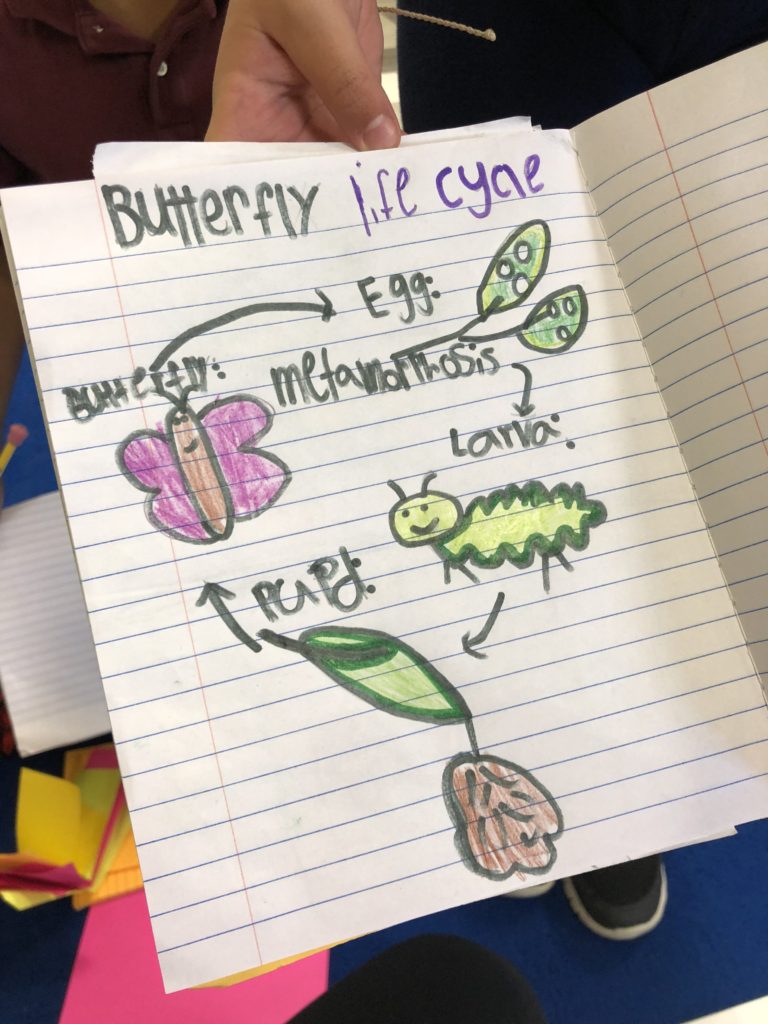 Butterfly life cycle
Egg:
Butterfly:
metamorphosis
Larva:
PuPa: